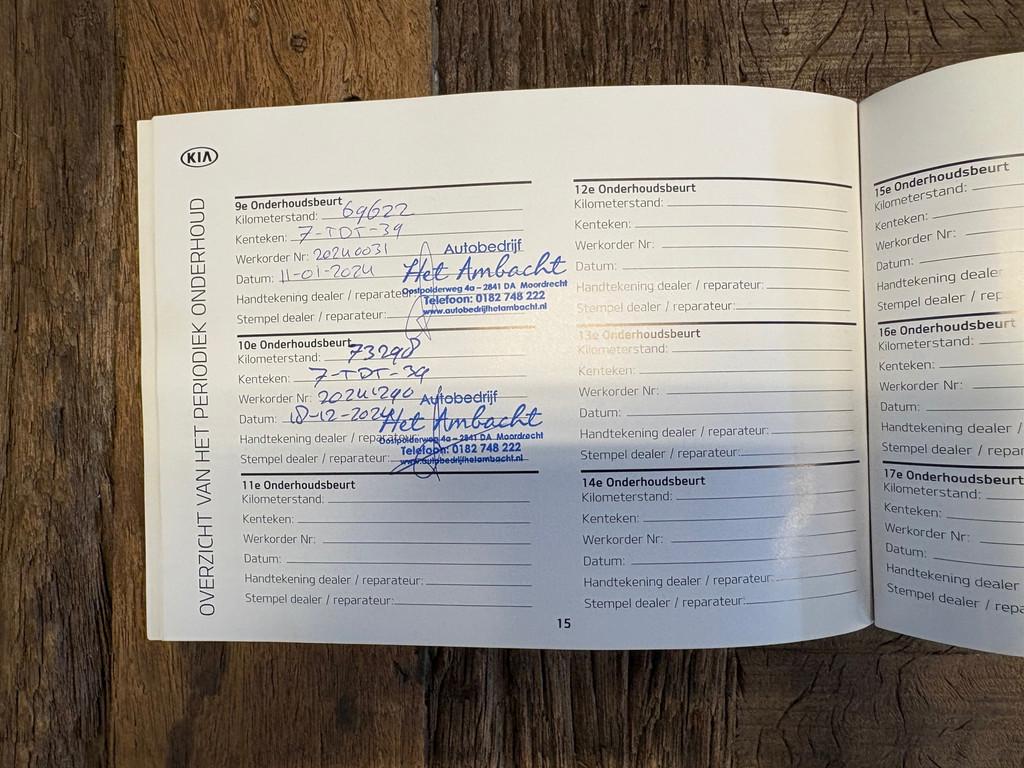 KIA
OVERZICHT VAN HET PERIODIEK ONDERHOUD
9e Onderhoudsbeurt
Kilometerstand: 69622
Kenteken: 7-TDT-39
Werkorder Nr: 20240031
Datum: 11-01-2024
Handtekening dealer / reparateur:
Stempel dealer / reparateur:
Autobedrijf
Het Ambacht
Oostpolderweg 4a – 2841 DA Moordrecht
Telefoon: 0182 748 222
www.autobedrijfhetambacht.nl
10e Onderhoudsbeurt
Kilometerstand: 73298
Kenteken: 7-TDT-39
Werkorder Nr: 20241290
Datum: 18-12-2024
Handtekening dealer / reparateur:
Stempel dealer / reparateur:
Autobedrijf
Het Ambacht
Oostpolderweg 4a – 2841 DA Moordrecht
Telefoon: 0182 748 222
www.autobedrijfhetambacht.nl
11e Onderhoudsbeurt
Kilometerstand:
Kenteken:
Werkorder Nr:
Datum:
Handtekening dealer / reparateur:
Stempel dealer / reparateur:
12e Onderhoudsbeurt
Kilometerstand:
Kenteken:
Werkorder Nr:
Datum:
Handtekening dealer / reparateur:
Stempel dealer / reparateur:
13e Onderhoudsbeurt
Kilometerstand:
Kenteken:
Werkorder Nr:
Datum:
Handtekening dealer / reparateur:
Stempel dealer / reparateur:
14e Onderhoudsbeurt
Kilometerstand:
Kenteken:
Werkorder Nr:
Datum:
Handtekening dealer / reparateur:
Stempel dealer / reparateur:
15
15e Onderhoudsbeurt
Kilometerstand:
Kenteken:
Werkorder Nr:
Datum:
Handtekening dealer
Stempel dealer / rep
16e Onderhoudsbeurt
Kilometerstand:
Kenteken:
Werkorder Nr:
Datum:
Handtekening dealer /
Stempel dealer / repar
17e Onderhoudsbeurt
Kilometerstand:
Kenteken:
Werkorder Nr:
Datum:
Handtekening dealer
Stempel dealer / repa